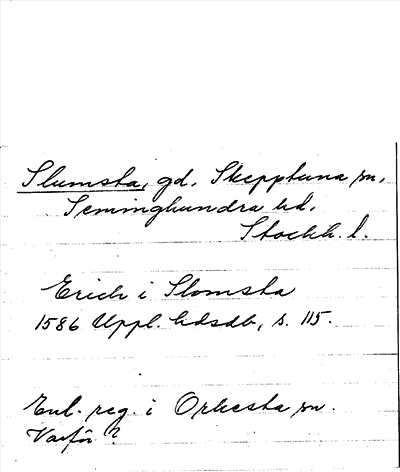 Slumsta, gd, Skepptuna sn,
Seminghundra hd,
Stockh. l.
Erich i Slomsta
1586 Uppl. hdsdb, s. 115.
Enl. reg. i Orkesta sn.
Varför?